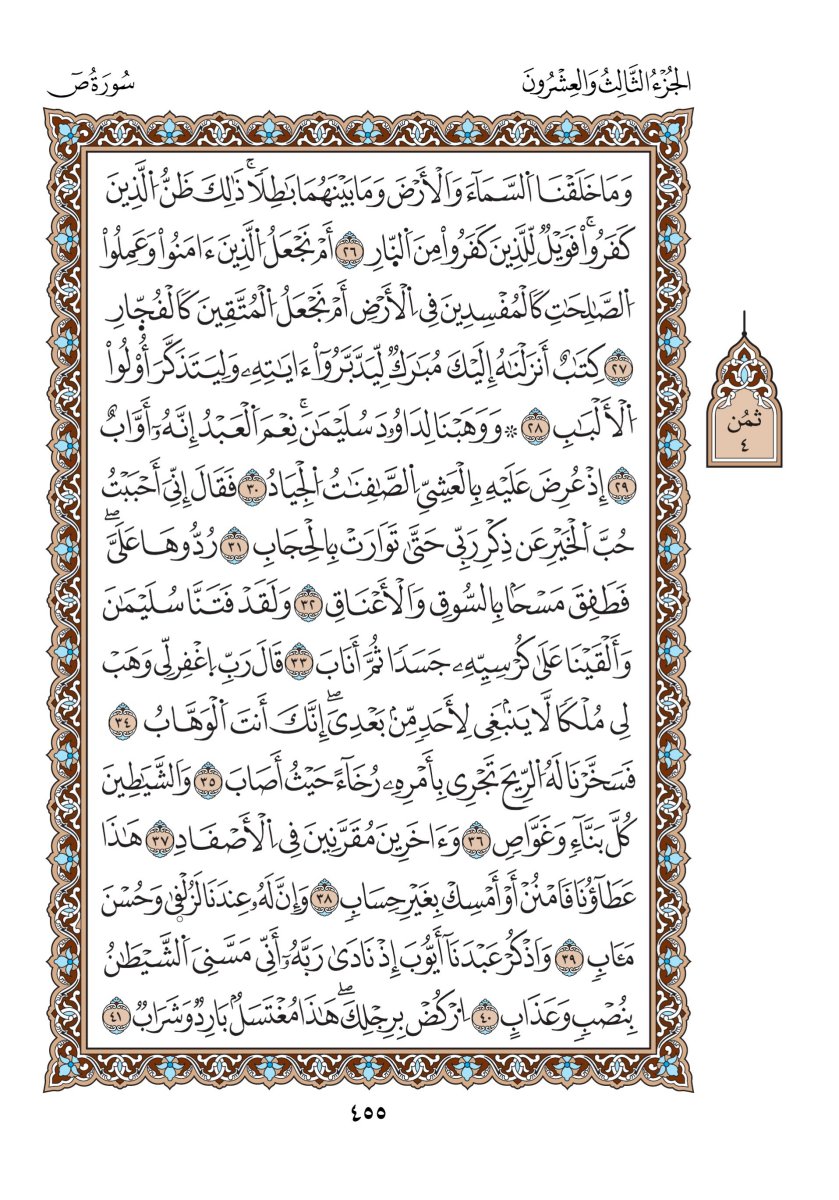 الجُزْءُ الثَّالِثُ وَالعِشْرُونَ
سُورَةُ صٓ
وَمَا خَلَقْنَا اَ۬لسَّمَآءَ وَالْأَرْضَ وَمَا بَيْنَهُمَا بَٰطِلاٗۚ ذَٰلِكَ ظَنُّ اُ۬لذِينَ
كَفَرُواْۚ فَوَيْلٞ لِّلذِينَ كَفَرُواْ مِنَ اَ۬لنّ۪ارِ ٢٦ أَمْ نَجْعَلُ اُ۬لذِينَ ءَامَنُواْ وَعَمِلُواْ
اُ۬لصَّٰلِحَٰتِ كَالْمُفْسِدِينَ فِي اِ۬لْأَرْضِ أَمْ نَجْعَلُ اُ۬لْمُتَّقِينَ كَالْفُجّ۪ارِ
٢٧ كِتَٰبٌ أَنزَلْنَٰهُ إِلَيْكَ مُبَٰرَكٞ لِّيَدَّبَّرُوٓاْ ءَايَٰتِهِۦ وَلِيَتَذَكَّرَ أُوْلُواْ
اُ۬لْأَلْبَٰبِ ٢٨ ۞ وَوَهَبْنَا لِدَاوُۥدَ سُلَيْمَٰنَۚ نِعْمَ اَ۬لْعَبْدُ إِنَّهُۥٓ أَوَّابٌ
٢٩ إِذْ عُرِضَ عَلَيْهِ بِالْعَشِيِّ اِ۬لصَّٰفِنَٰتُ اُ۬لْجِيَادُ ٣٠ فَقَالَ إِنِّيَ أَحْبَبْتُ
حُبَّ اَ۬لْخَيْرِ عَن ذِكْرِ رَبِّي حَتَّىٰ تَوَارَتْ بِالْحِجَابِ ٣١ رُدُّوهَا عَلَيَّۖ
فَطَفِقَ مَسْحاَۢ بِالسُّوقِ وَالْأَعْنَاقِ ٣٢ وَلَقَدْ فَتَنَّا سُلَيْمَٰنَ
وَأَلْقَيْنَا عَلَىٰ كُرْسِيِّهِۦ جَسَداٗ ثُمَّ أَنَابَ ٣٣ قَالَ رَبِّ اِ۪غْفِر لِّي وَهَبْ
لِي مُلْكاٗ لَّا يَنۢبَغِي لِأَحَدٖ مِّنۢ بَعْدِيَۖ إِنَّكَ أَنتَ اَ۬لْوَهَّابُ ٣٤
فَسَخَّرْنَا لَهُ اُ۬لرِّيحَ تَجْرِي بِأَمْرِهِۦ رُخَآءً حَيْثُ أَصَابَ ٣٥ وَالشَّيَٰطِينَ
كُلَّ بَنَّآءٖ وَغَوَّاصٖ ٣٦ وَءَاخَرِينَ مُقَرَّنِينَ فِي اِ۬لْأَصْفَادِ ٣٧ هَٰذَا
عَطَآؤُنَا فَامْنُنْ أَوْ أَمْسِكْ بِغَيْرِ حِسَابٖ ٣٨ وَإِنَّ لَهُۥ عِندَنَا لَزُلْف۪ىٰ وَحُسْنَ
مَـَٔابٖ ٣٩ وَاذْكُرْ عَبْدَنَآ أَيُّوبَ إِذْ نَادَىٰ رَبَّهُۥٓ أَنِّي مَسَّنِيَ اَ۬لشَّيْطَٰنُ
بِنُصْبٖ وَعَذَابٍ ٤٠ اِ۟رْكُضْ بِرِجْلِكَۖ هَٰذَا مُغْتَسَلُۢ بَارِدٞ وَشَرَابٞ ٤١
ثُمُن
٤
٤٥٥